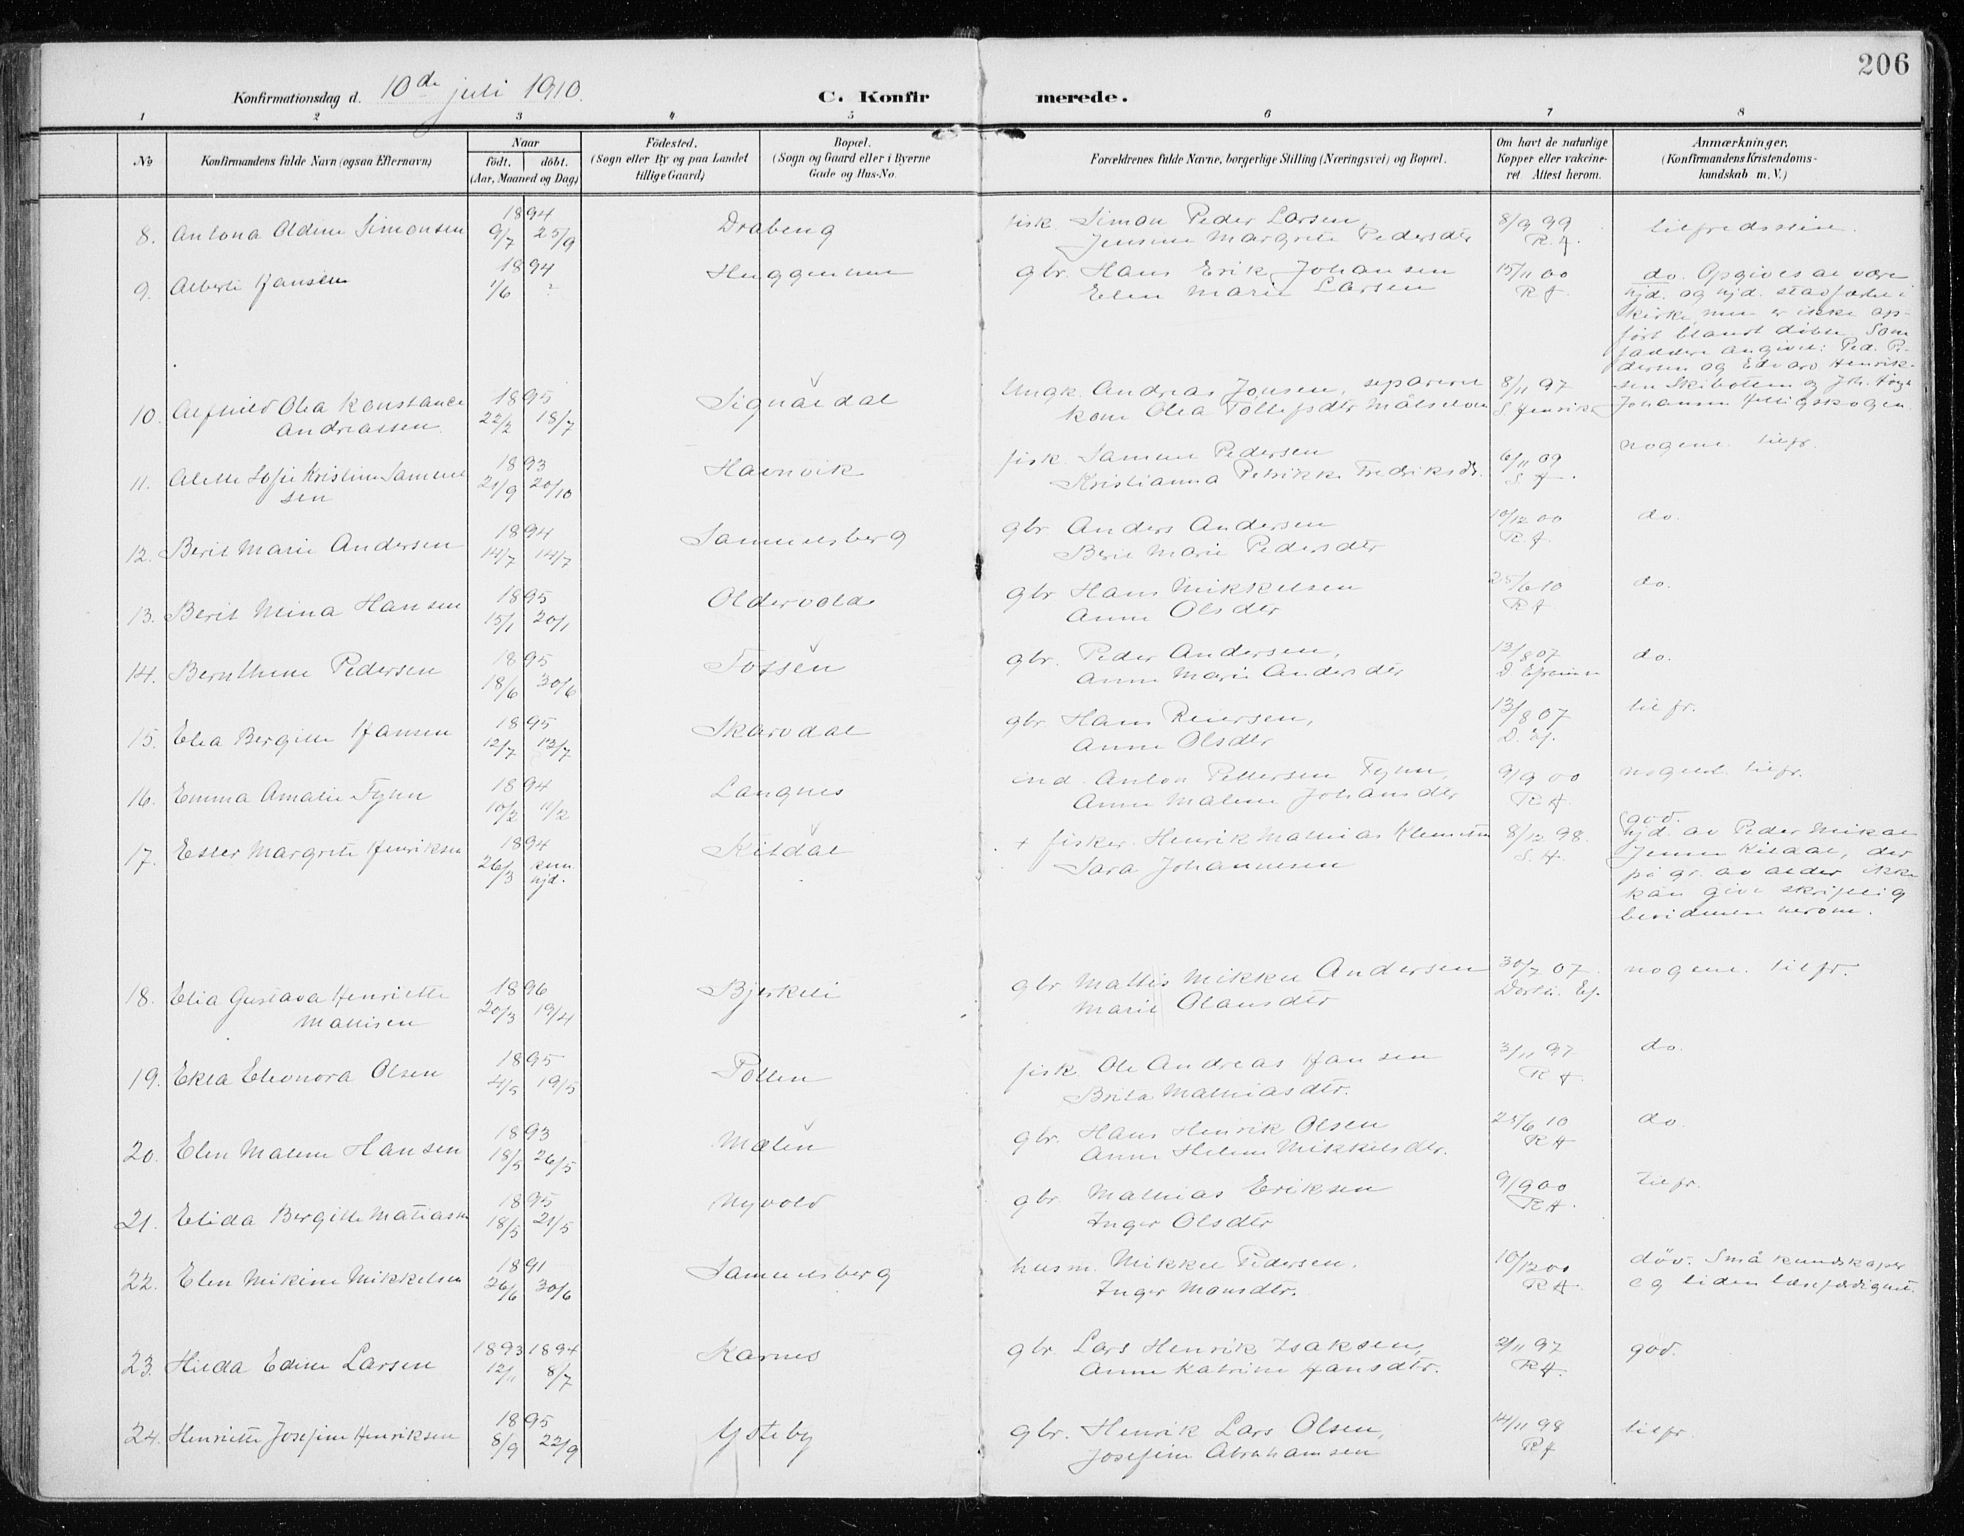 206
Konfirmationsdag d. 10de juli 1910. C. Konfir merede.
1 2 3 4 5 6 7 8
No Konfirmandens fulde Navn (ogsaa Efternavn)
Naar
født, døbt.
(Aar, Maaned og Dag)
Fødested.
(Sogn eller By og paa Landet
tillige Gaard)
Bopæl.
(Sogn og Gaard eller i Byerne
Gade og Hus-No.
Forældrenes fulde Navne, borgerlige Stilling (Næringsvei) og Bopæl.
Om havt de naturlige
Kopper eller vakcine-
ret. Attest herom.
Anmærkninger,
(Konfirmandens Kristendoms-
kundskab m. V.)
8. Antona Aldine Simonsen 1894 9/7 25/9 Drabeng fisk. Simon Peder Larsen, 8/9 99 tilfredsstill.
Jensine Margrete Pedersdtr R.H.
9. Alberti Hansen 1894 1/6 ? gbr. Hans Erik Johansen 15/11 00 do. Opgives at være
Elen Marie Larsen RH hjd. og hjd. stadfæstet i
kirke men er ikke op-
ført blandt døbte. Som
faddere angivet: Ped. Pe-
dersen og Edvard Henrik-
10. Alfhild Olea Konstance 1895 Signaldal Ungk. Andreas Jonsen, separeret 8/11 97 sen Skibotten og Joh.
Andreassen 22/2 18/7 kone Olea Tollefsdtr Målselven S. Henriks Johansen Helligskogen.
11. Alette Sofie Kristine Samuel 1893 Havnvik fisk. Samuel Pedersen 6/11 09 nogenl. tilfr.
sen 21/9 20/10 Kristianna Petrikke Fredriksdtr. S H.
12. Berit Marie Andersen 1894 14/7 14/7 Samuelsberg gbr Anders Andersen 10/12 00 do.
Berit Marie Pedersdtr R H.
13. Berit Mina Hansen 1895 15/1 20/1 Oldervold gbr Hans Mikkelsen 25/6 10 do.
Anne Olsdtr RH
14. Bernthine Pedersen 1895 18/6 30/6 Fossen gbr. Peder Andersen, 13/8 07 do.
Anne Marie Andersdtr D Efraims
15. Elea Bergitte Hansen 1895 12/7 13/7 Skardal gbr Hans Reiersen, 13/8 07 tilfr.
Anne Olsdtr D. Ef.
16. Emma Amalie Fynn 1894 10/2 11/2 Langnes ind. Anton Pettersen Fynn, 9/9 00 nogenl. tilfr.
Anne Malene Johansdtr RH.
17. Ester Margrete Henriksen 1894 26/3 kun hjd. Kitdal + fisker Henrik Mathias Klemetsen 8/12 98. god.
Sara Johannesen S. H. hjd. av Peder Mikal
Jensen Kitdal, der
på gr. av alder ikke
kan give skriftlig
bevidnen herom.
18. Elia Gustava Henriette 1896 Bjerkeli gbr Mattis Mikkel Andersen 30/7 07. nogenl. tilfr.
Mattisen 20/3 19/4 Marie Olausdtr Dorte. Ef.
19. Ekla Eleonora Olsen 1895 4/5 19/5 Pollen fisk. Ole Andreas Hansen 3/11 97 do.
Brita Mathiasdtr. RH
20. Elen Malene Hansen 1893 18/5 26/5 Mælen gbr. Hans Henrik Olsen 25/6 10 do.
Anne Helene Mikkelsdtr. RH
21. Elida Bergitte Matiassen 1895 18/5 21/5 Nyvold gbr. Mathias Eriksen 9/9 00 tilfr.
Inger Olsdtr RH.
22. Elen Mikine Mikkelsen 1891 26/6 30/6 Samuelsberg husm. Mikkel Pedersen, 10/12 00 døv. Små kundskaper
Inger Monsdtr. RH. og liden læsefærdighet.
23. Hilda Edine Larsen 1893 12/11 1894 8/7 Karnes gbr Lars Henrik Isaksen, 2/11 97 god.
Anne Katrine Hansdtr. RH.
24. Henriette Josefine Henriksen 1895 8/9 22/9 Ysteby gbr. Henrik Lars Olsen, 14/11 98 tilfr.
Josefine Abrahamsen RH